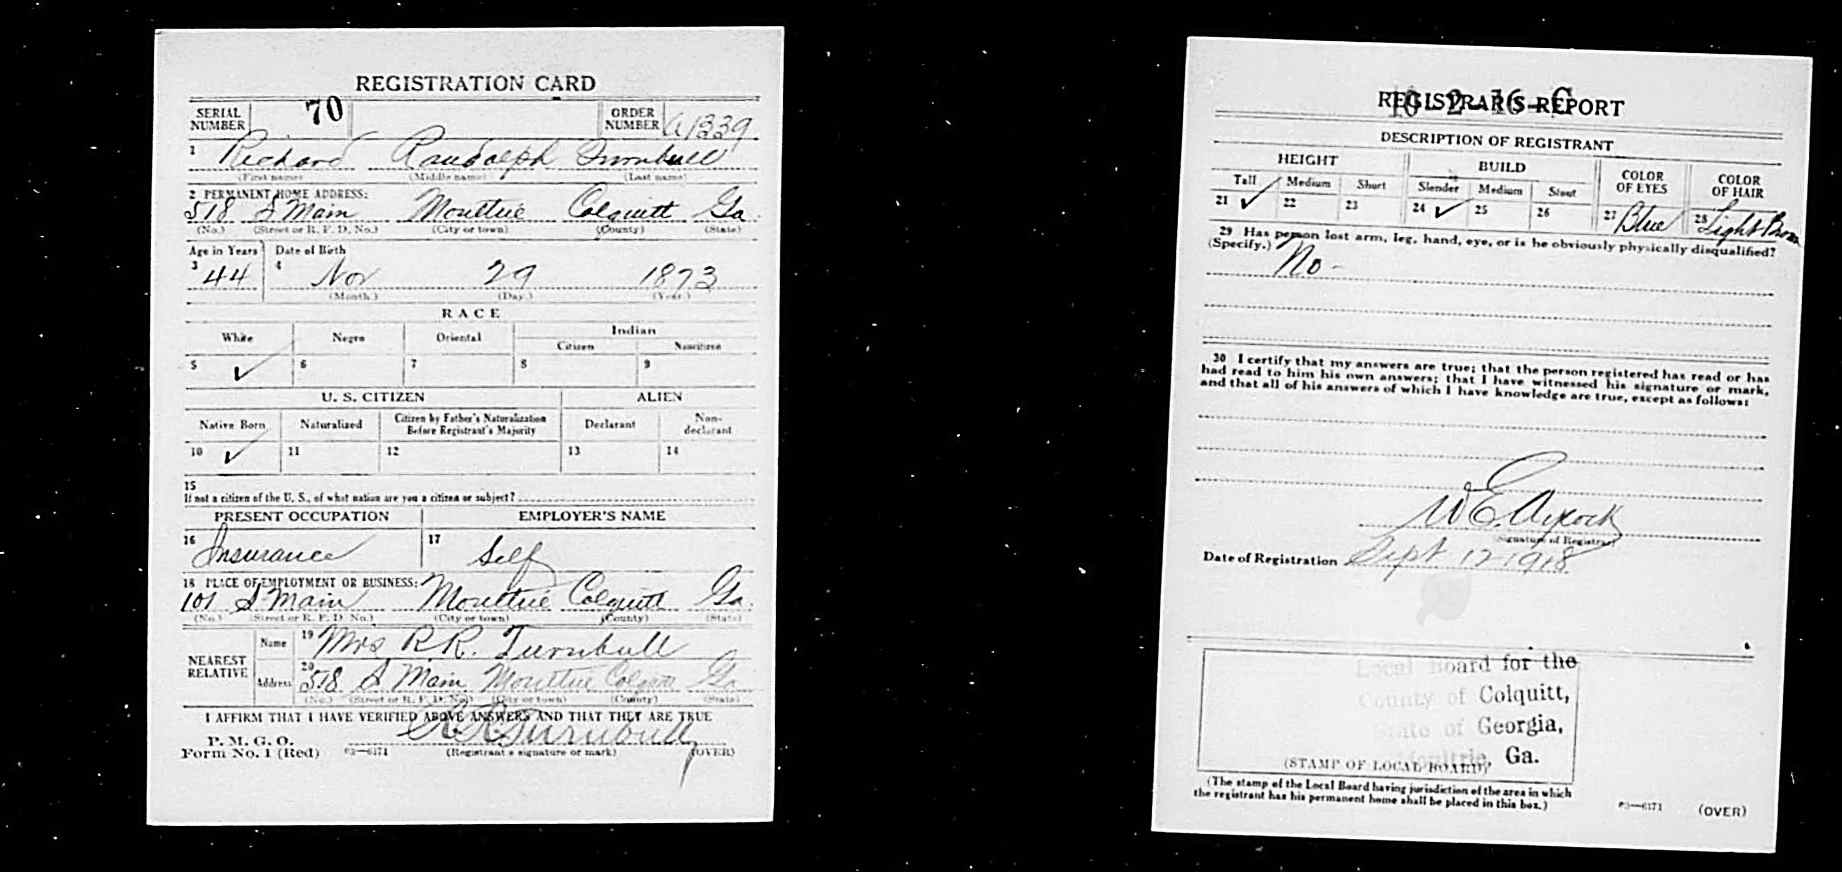 REGISTRATION CARD
SERIAL NUMBER 70 ORDER NUMBER A1339
1 Richard Randolph Turnbull
(First name) (Middle name) (Last name)
2 PERMANENT HOME ADDRESS:
518 S Main Moultrie Colquitt Ga.
(No.) (Street or R. F. D. No.) (City or town) (County) (State)
Age in Years Date of Birth
3 44 4 Nov 29 1873
(Month.) (Day.) (Year.)
RACE
White Negro Oriental Indian
Citizen Noncitizen
5 ✓ 6 7 8 9
U. S. CITIZEN ALIEN
Native Born Naturalized Citizen by Father's Naturalization Before Registrant's Majority Declarant Non-declarant
10 ✓ 11 12 13 14
15
If not a citizen of the U. S., of what nation are you a citizen or subject?
PRESENT OCCUPATION EMPLOYER'S NAME
16 Insurance 17 Self
18 PLACE OF EMPLOYMENT OR BUSINESS:
101 S Main Moultrie Colquitt Ga.
(No.) (Street or R. F. D. No.) (City or town) (County) (State)
NEAREST RELATIVE Name 19 Mrs R.R. Turnbull
Address 20 518 S Main Moultrie Colquitt Ga
(No.) (Street or R. F. D. No.) (City or town) (County) (State)
I AFFIRM THAT I HAVE VERIFIED ABOVE ANSWERS AND THAT THEY ARE TRUE
P. M. G. O.
Form No. 1 (Red) 03—6171 R R Turnbull
(Registrant's signature or mark) (OVER)
REGISTRAR'S REPORT
10-2-16-C
DESCRIPTION OF REGISTRANT
HEIGHT BUILD COLOR OF EYES COLOR OF HAIR
Tall Medium Short Slender Medium Stout
21 ✓ 22 23 24 ✓ 25 26 27 Blue 28 Light Brown
29 Has person lost arm, leg, hand, eye, or is he obviously physically disqualified?
(Specify.) No -
30 I certify that my answers are true; that the person registered has read or has
had read to him his own answers; that I have witnessed his signature or mark,
and that all of his answers of which I have knowledge are true, except as follows:
W E. Aycock
(Signature of Registrar)
Date of Registration Sept 12 1918
Local Board for the
County of Colquitt,
State of Georgia,
Moultrie, Ga.
(STAMP OF LOCAL BOARD)
(The stamp of the Local Board having jurisdiction of the area in which
the registrant has his permanent home shall be placed in this box.)
03—6171 (OVER)